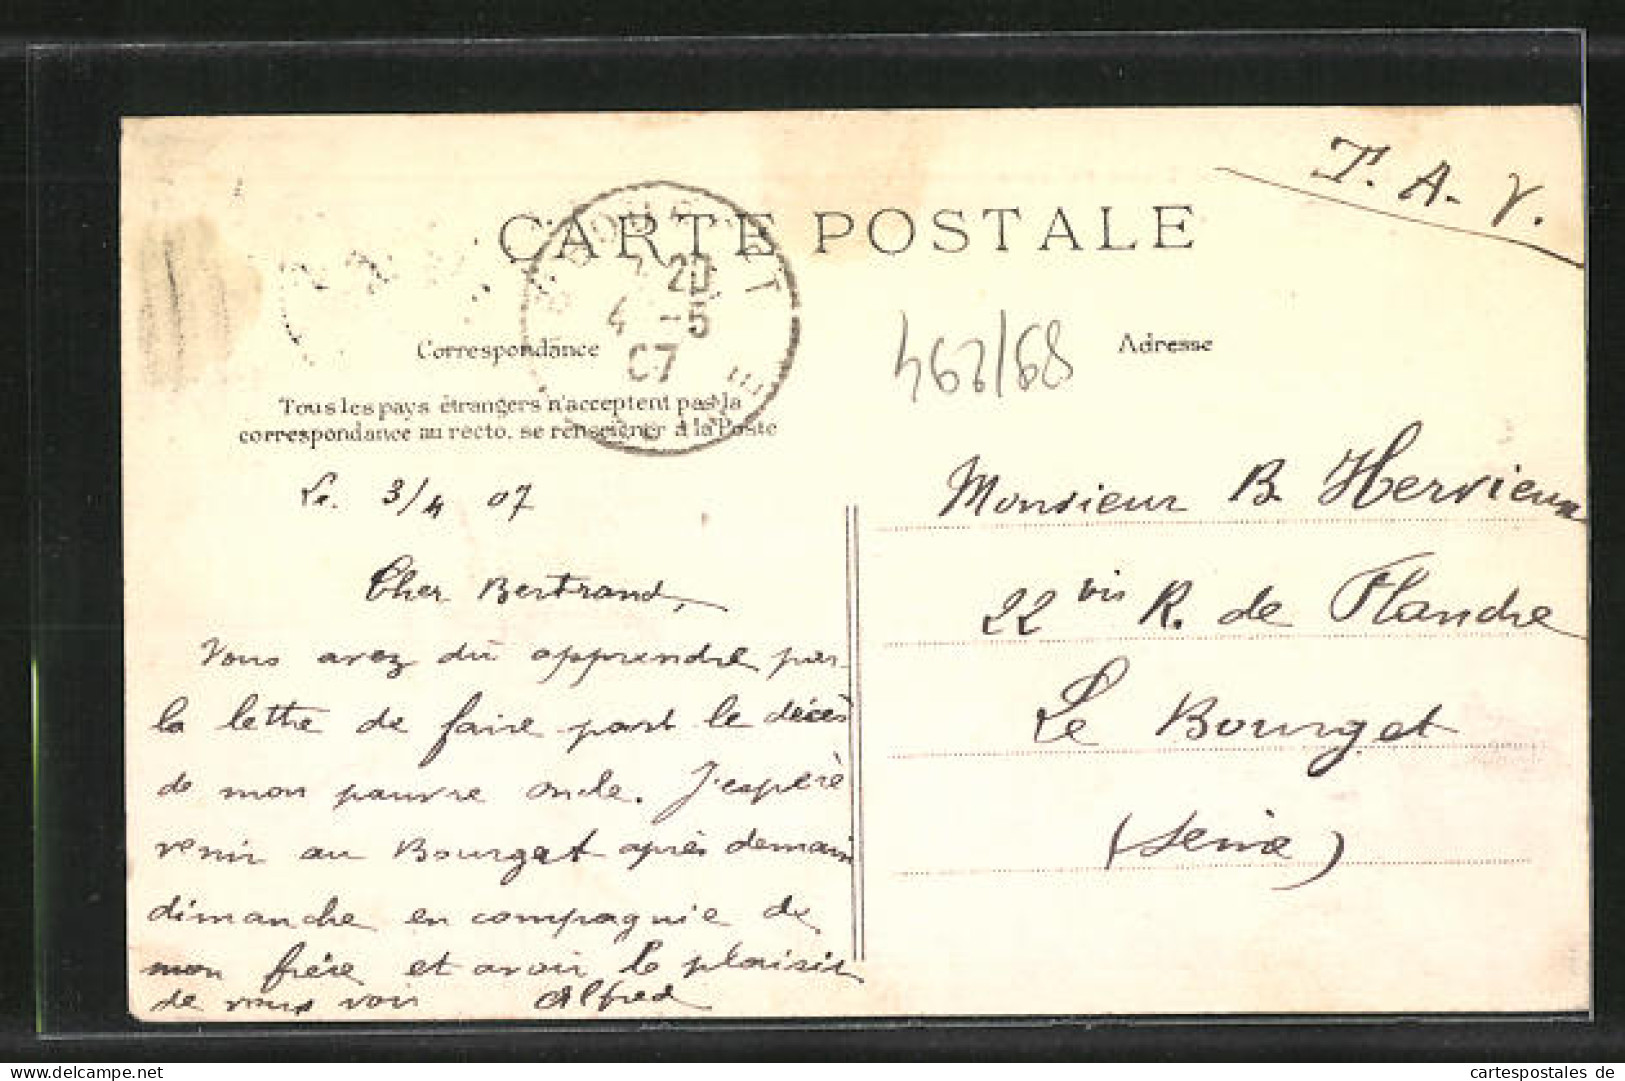 T. A. V.
CARTE POSTALE
20
4 -5
07
Correspondance
Tous les pays étrangers n'acceptent pas la
correspondance au recto, se renseigner à la Poste
462/68
Adresse
Le. 3/4 07
Cher Bertrand,
Vous avez dû apprendre par
la lettre de faire part le décès
de mon pauvre oncle. J'espère
venir au Bourget après demain
dimanche en compagnie de
mon frère et avoir le plaisir
de vous voir Alfred
Monsieur B. Hervieux
22 bis R. de Flandre
Le Bourget
(Seine)
cartespostales de